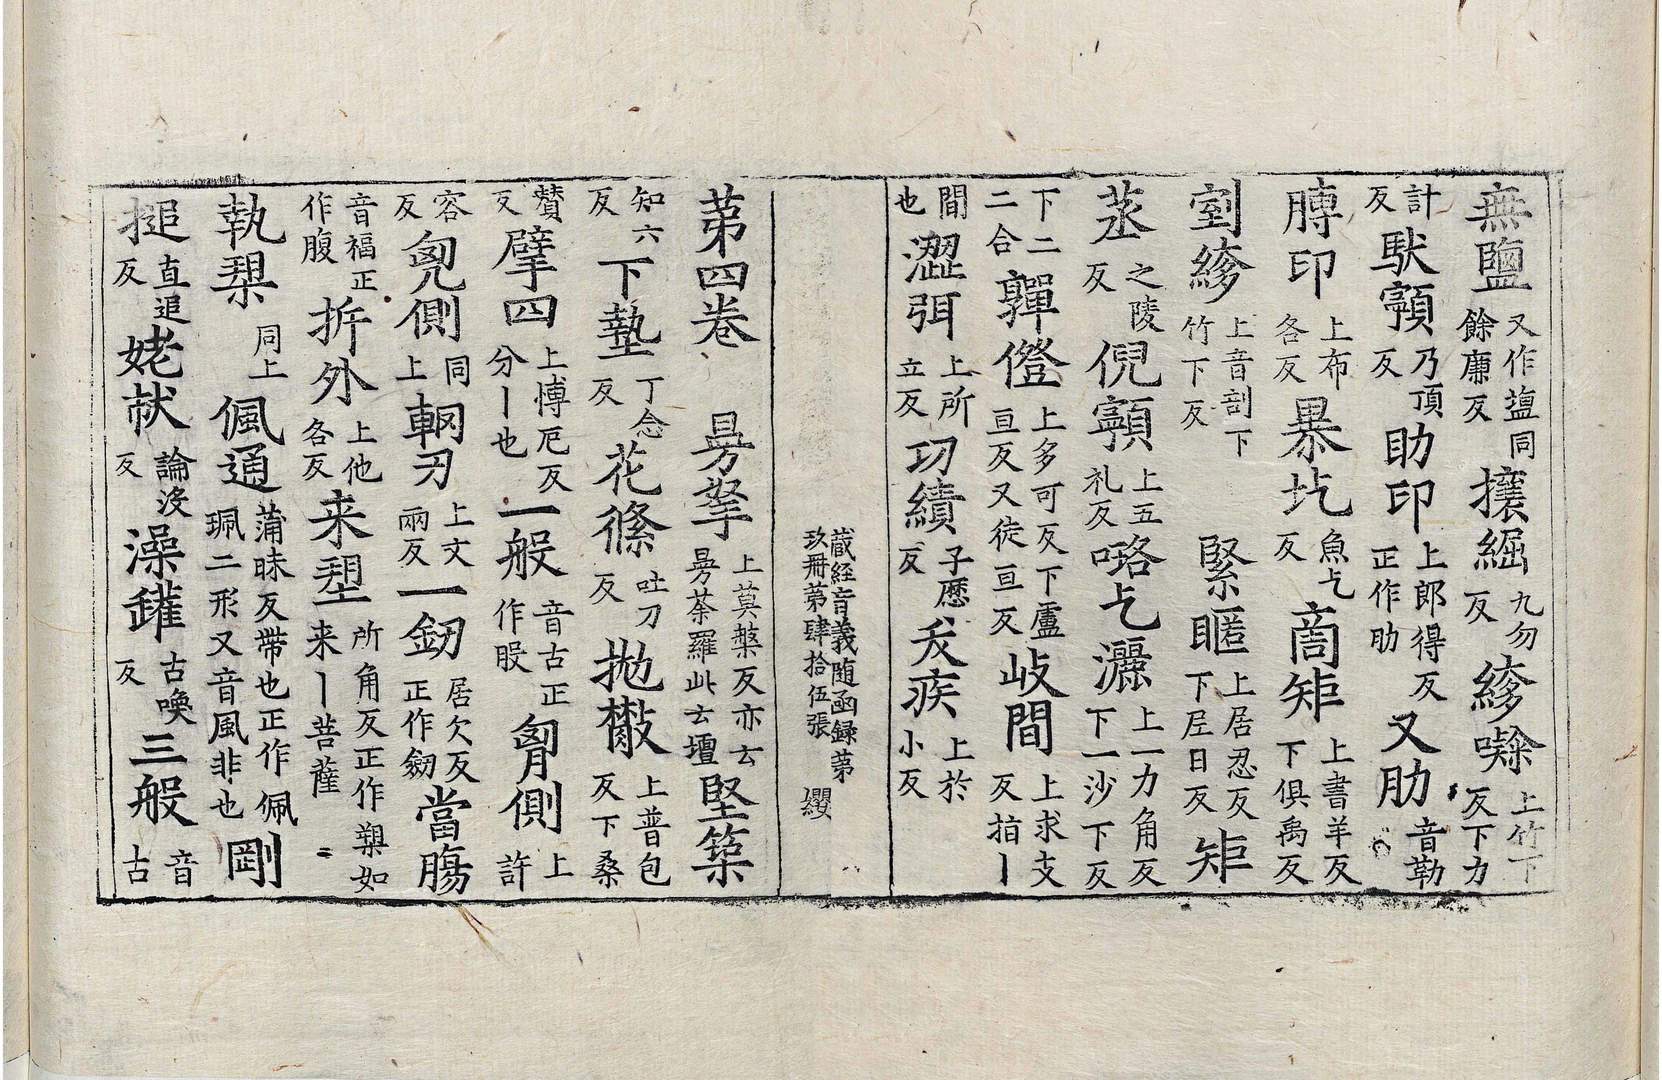 無鹽又作塩同餘廉反攘綛九勿反縿㗲上竹下反下力
計反䭾顐乃頂反助印上郎得反正作肋又肋音勒
膊印上布各反暴圪魚乞反啇矩上書羊反下俱禹反
㓮縿上音剖下竹下反緊䁥上居忍反下𡰱日反矩
蒸之陵反倪顐上五礼反㗉乞灑上一力角反下一沙下反
下二二合鄲僜上多可反下盧亘反又徒亘反岐間上求支反㨖丨
間也澀弭上所立反㓛績子歷反夭疾上於小反
藏經音義随函録第玖冊第肆拾伍張 纓
第四卷 㝵拏上莫槃反亦云㝵荼羅此云壇堅築
知六反下墊丁念反花絛吐刀反拋㩧上普包反下桑
贊反擘四上愽厄反分丨也一般音古正作股胷側上許
容反匈側同上輞刃上文兩反一釰居欠反正作劒當腸
音福正作腹拆外上他各反来塑所角反正作槊如来丨菩薩
執槊同上偑通蒲昧反帶也正作佩珮二形又音風非也剛
搥直追反姥㚘論没反澡鑵古喚反三般音古